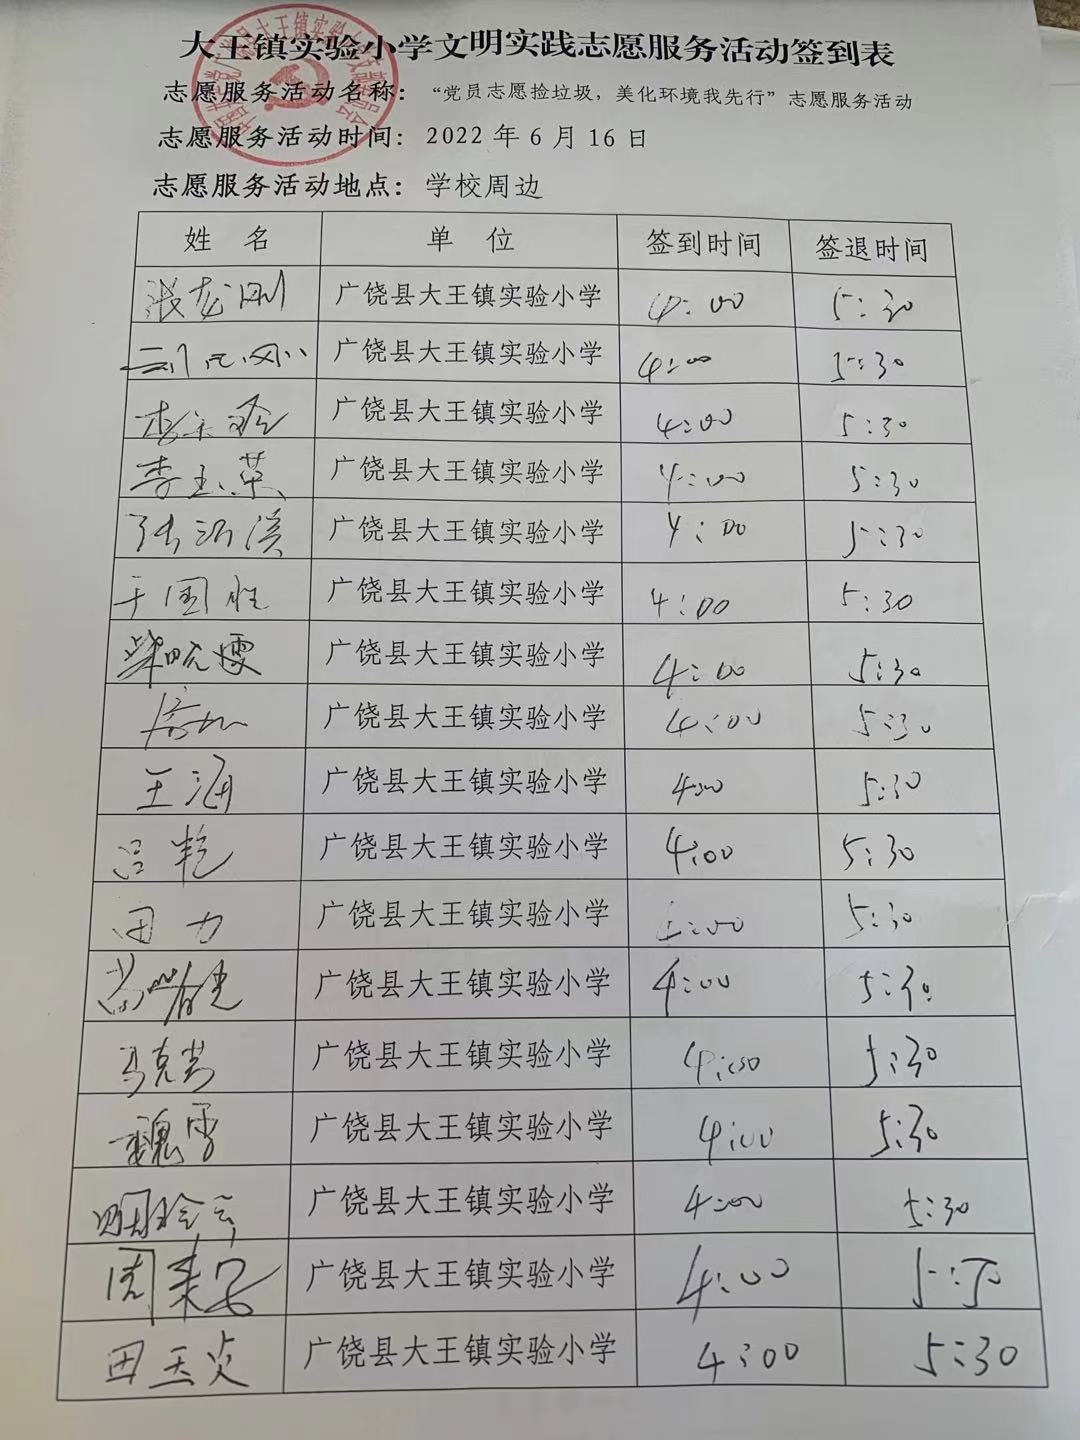 大王镇实验小学文明实践志愿服务活动签到表
志愿服务活动名称：“党员志愿捡垃圾，美化环境我先行”志愿服务活动
志愿服务活动时间：2022年6月16日
志愿服务活动地点：学校周边
姓 名 单 位 签到时间 签退时间
张龙刚 广饶县大王镇实验小学 4:00 5:30
广饶县大王镇实验小学 4:00 5:30
广饶县大王镇实验小学 4:00 5:30
李玉英 广饶县大王镇实验小学 4:00 5:30
张沂溪 广饶县大王镇实验小学 4:00 5:30
于国胜 广饶县大王镇实验小学 4:00 5:30
广饶县大王镇实验小学 4:00 5:30
广饶县大王镇实验小学 4:00 5:30
王海 广饶县大王镇实验小学 4:00 5:30
吕艳 广饶县大王镇实验小学 4:00 5:30
田力 广饶县大王镇实验小学 4:00 5:30
广饶县大王镇实验小学 4:00 5:30
广饶县大王镇实验小学 4:00 5:30
魏雪 广饶县大王镇实验小学 4:00 5:30
广饶县大王镇实验小学 4:00 5:30
周来安 广饶县大王镇实验小学 4:00 5:30
田玉炎 广饶县大王镇实验小学 4:00 5:30